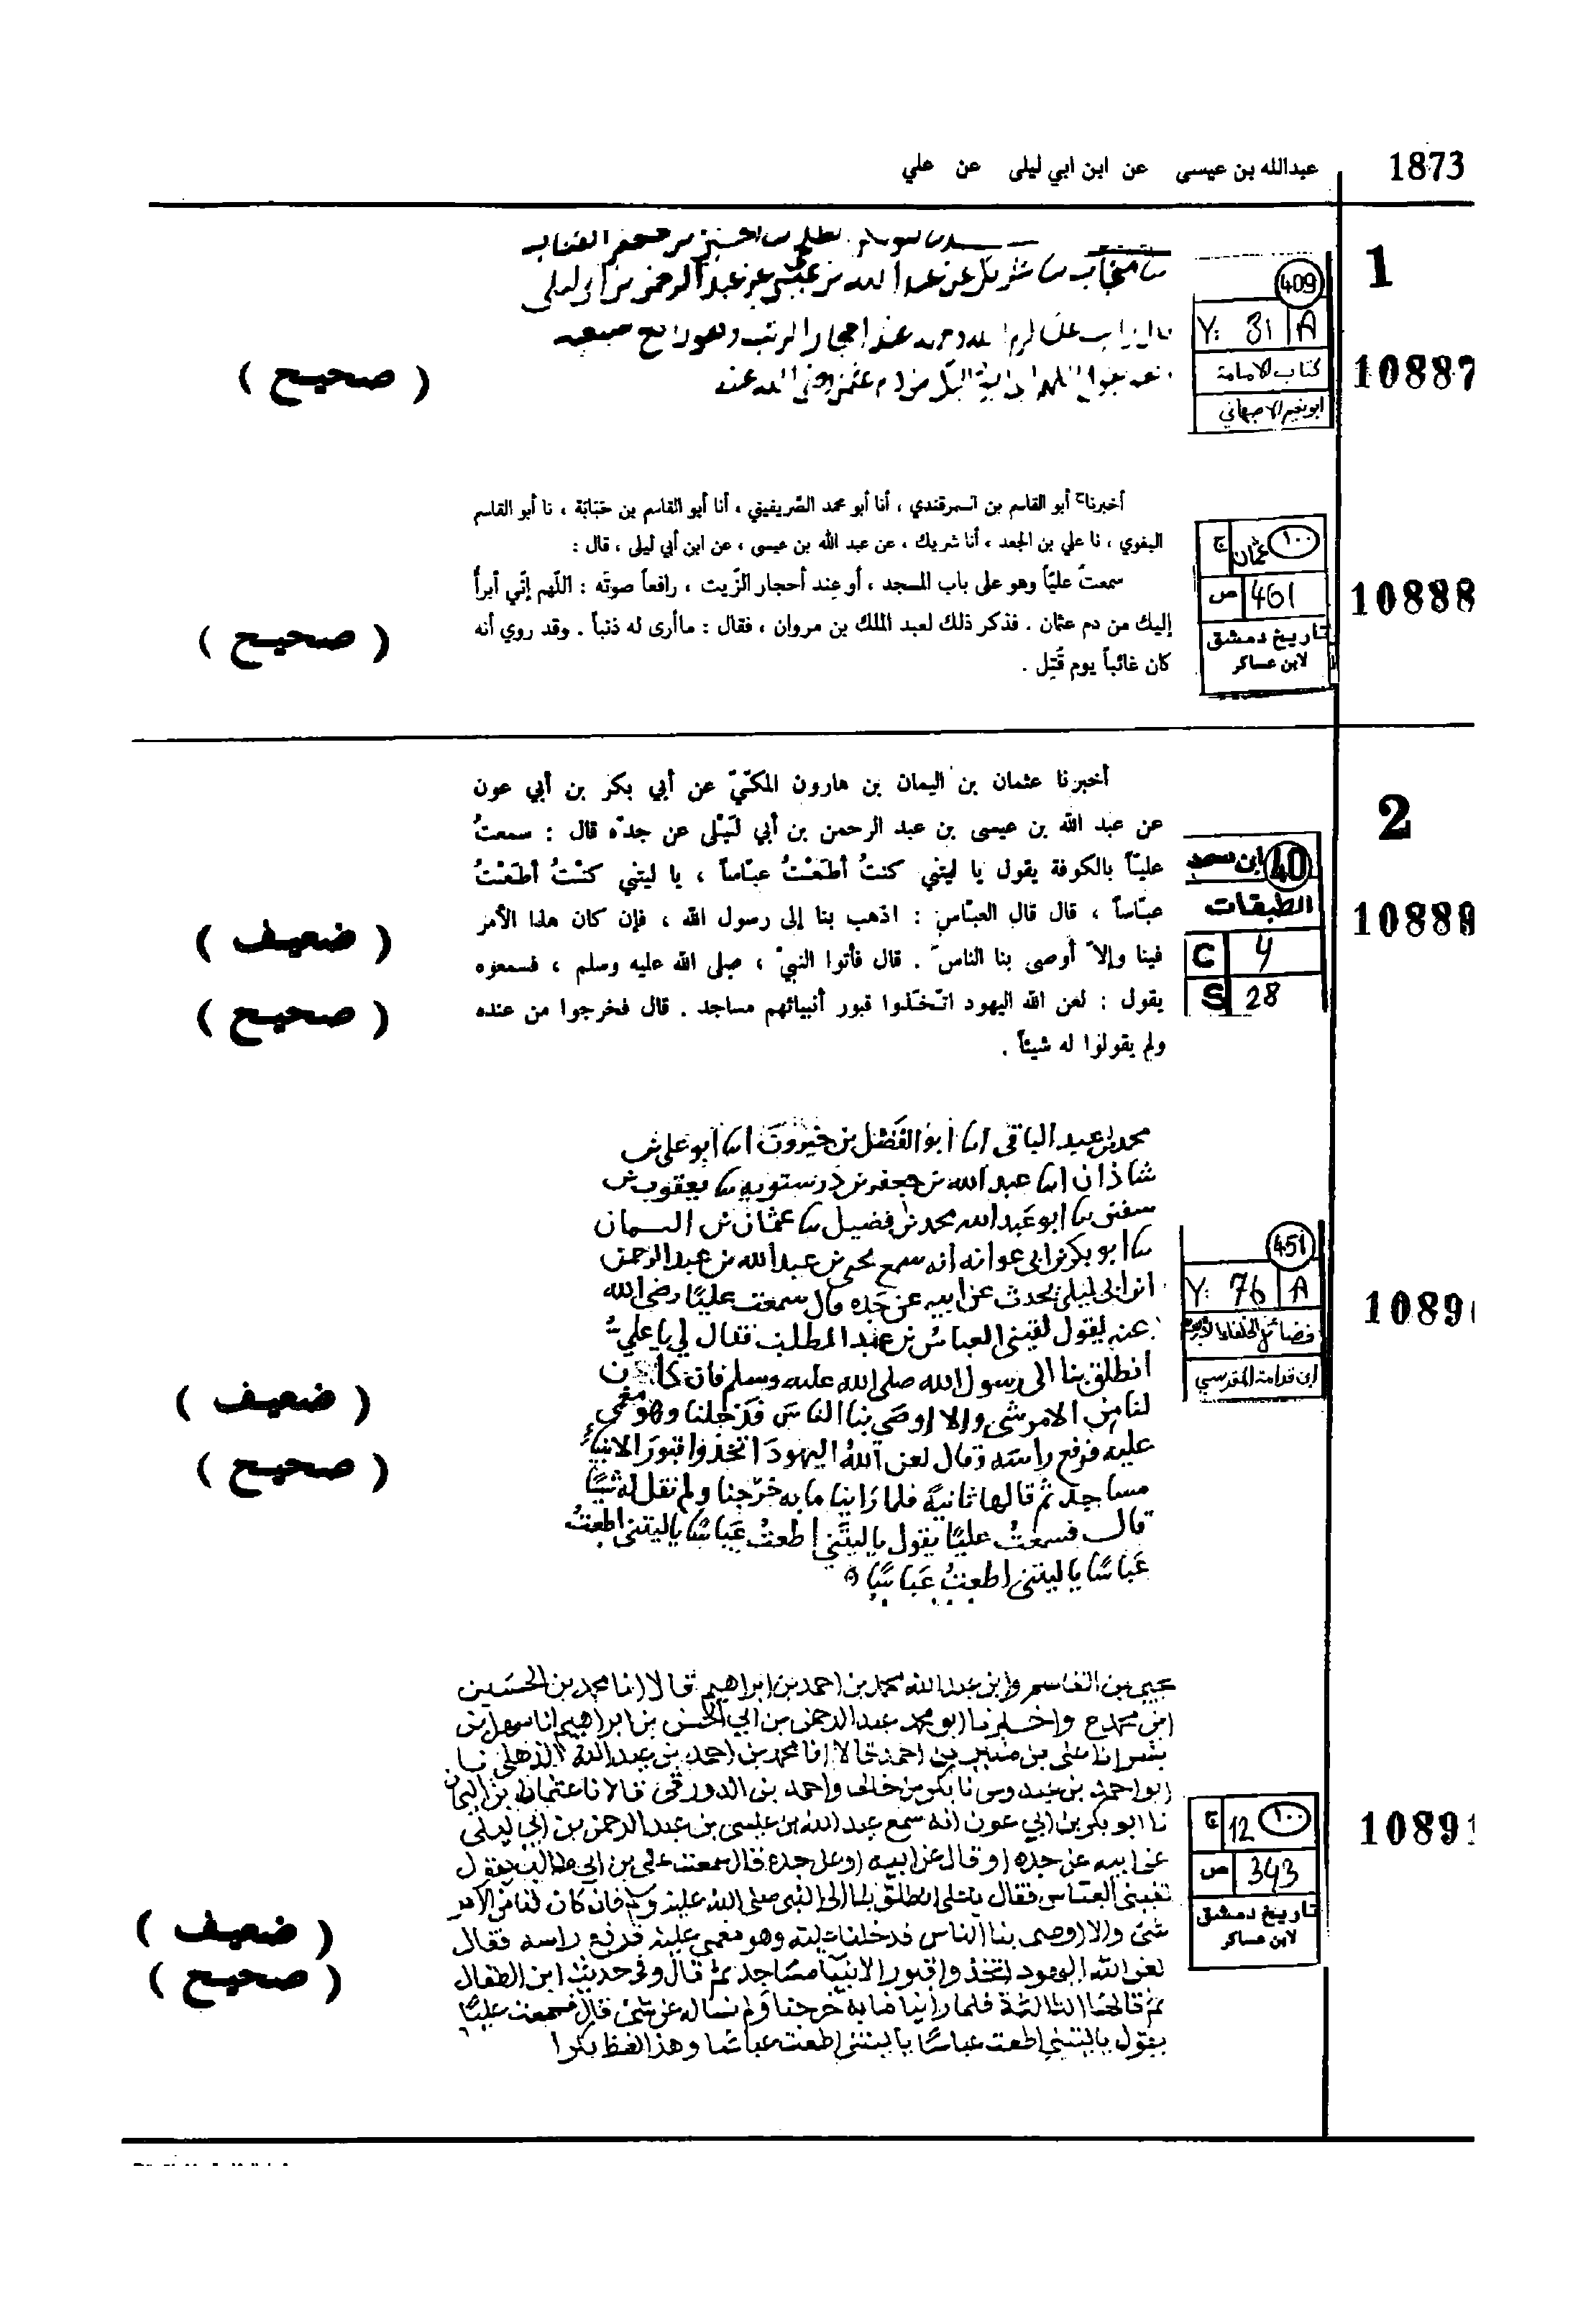 1873
عبدالله بن عيسى عن ابن ابي ليلى عن علي
1
409
Y: 31 A
كتاب الامامة
ابو نعيم الاصبهاني
10887
( صحيح )
أخبرنا أبو القاسم بن السمرقندي ، أنا أبو محمد الصّريفيني ، أنا أبو القاسم بن حَبَابَة ، نا أبو القاسم
البغوي ، نا علي بن الجعد ، أنا شريك ، عن عبد الله بن عيسى ، عن ابن أبي ليلى ، قال :
سمعتُ عليّاً وهو على باب المسجد ، أو عند أحجار الزّيت ، رافعاً صوتَه : اللّهم إنّي أبرأ
إليك من دم عثمان . فذكر ذلك لعبد الملك بن مروان ، فقال : ماأرى له ذنباً . وقد روي أنه
كان غائباً يوم قُتِل .
١٠٠ عثمان ج
461 ص
تاريخ دمشق
لابن عساكر
10888
( صحيح )
2
أخبرنا عثمان بن اليمان بن هارون المكّيّ عن أبي بكر بن أبي عون
عن عبد الله بن عيسى بن عبد الرحمن بن أبي لَيْلى عن جدّه قال : سمعتُ
عليّاً بالكوفة يقول يا ليتني كنتُ أطَعْتُ عبّاساً ، يا ليتني كنتُ أطَعْتُ
عبّاساً ، قال قال العبّاس : اذهب بنا إلى رسول الله ، فإن كان هذا الأمر
فينا وإلاّ أوصى بنا الناس . قال فأتوا النبيّ ، صلى الله عليه وسلم ، فسمعوه
يقول : لعن الله اليهود اتّخذوا قبور أنبيائهم مساجد . قال فخرجوا من عنده
ولم يقولوا له شيئاً .
40 ابن سعد
الطبقات
C 4
S 28
10889
( ضعيف )
( صحيح )
محمد بن عبد الباقي انا ابو الفضل بن خيرون انا ابو علي بن
شاذان انا عبد الله بن جعفر بن درستويه نا يعقوب بن
سفين نا ابو عبد الله محمد بن فضيل نا عثمان بن اليمان
نا ابو بكر بن ابي عوانه انه سمع يحيى بن عبد الله بن عبد الرحمن
ابن ابي ليلى يحدث عن ابيه عن جده قال سمعت عليّا رضي الله
عنه يقول لقيني العباس بن عبد المطلب فقال لي يا علي
انطلق بنا الى رسول الله صلى الله عليه وسلم فان كان
لنا من الامر شي والا اوصى بنا الناس فدخلنا وهو مغمى
عليه فرفع راسه وقال لعن الله اليهود اتخذوا قبور الانبياء
مساجد ثم قالها ثانية فلما راينا ما به خرجنا ولم نقل له شيئا
قال فسمعت عليا يقول ياليتني اطعت عباسا ياليتني اطعت
عباسا ياليتني اطعت عباسا
451
Y: 76 A
فضائل الخلفاء الاربعة
ابن قدامة المقدسي
1089
( ضعيف )
( صحيح )
بن القاسم وابن عبد الله محمد بن احمد بن ابراهيم قالا انا محمد بن الحسين
ابن محمد ح واخبرنا ابو محمد عبد الرحمن بن ابي الحسن بن ابراهيم انا سهل بن
بشر انا علي بن منير بن احمد قالا انا محمد بن احمد بن عبد الله الذهلي نا
ابو احمد بن عبدوس نا بكر بن خالد واحمد بن الدورقي قالا نا عثمان بن اليمان
نا ابو بكر بن ابي عون انه سمع عبد الله بن عيسى بن عبد الرحمن بن ابي ليلى
عن ابيه عن جده او قال عن ابيه او عن جده قال سمعت علي بن ابي طالب يقول
لقيني العباس فقال يا علي انطلق بنا الى النبي صلى الله عليه وسلم فان كان لنا من الامر
شي والا اوصى بنا الناس فدخلنا عليه وهو مغمى عليه فرفع راسه فقال
لعن الله اليهود اتخذوا قبور الانبيا مساجد ثم قال وفي حديث ابن الطفال
ثم قالها الثالثة فلما راينا ما به خرجنا ولم نساله عن شي قال فسمعت عليا
يقول ياليتني اطعت عباسا ياليتني اطعت عباسا وهذا لفظ بكر
١٠٠ 12 ج
343 ص
تاريخ دمشق
لابن عساكر
10891
( ضعيف )
( صحيح )